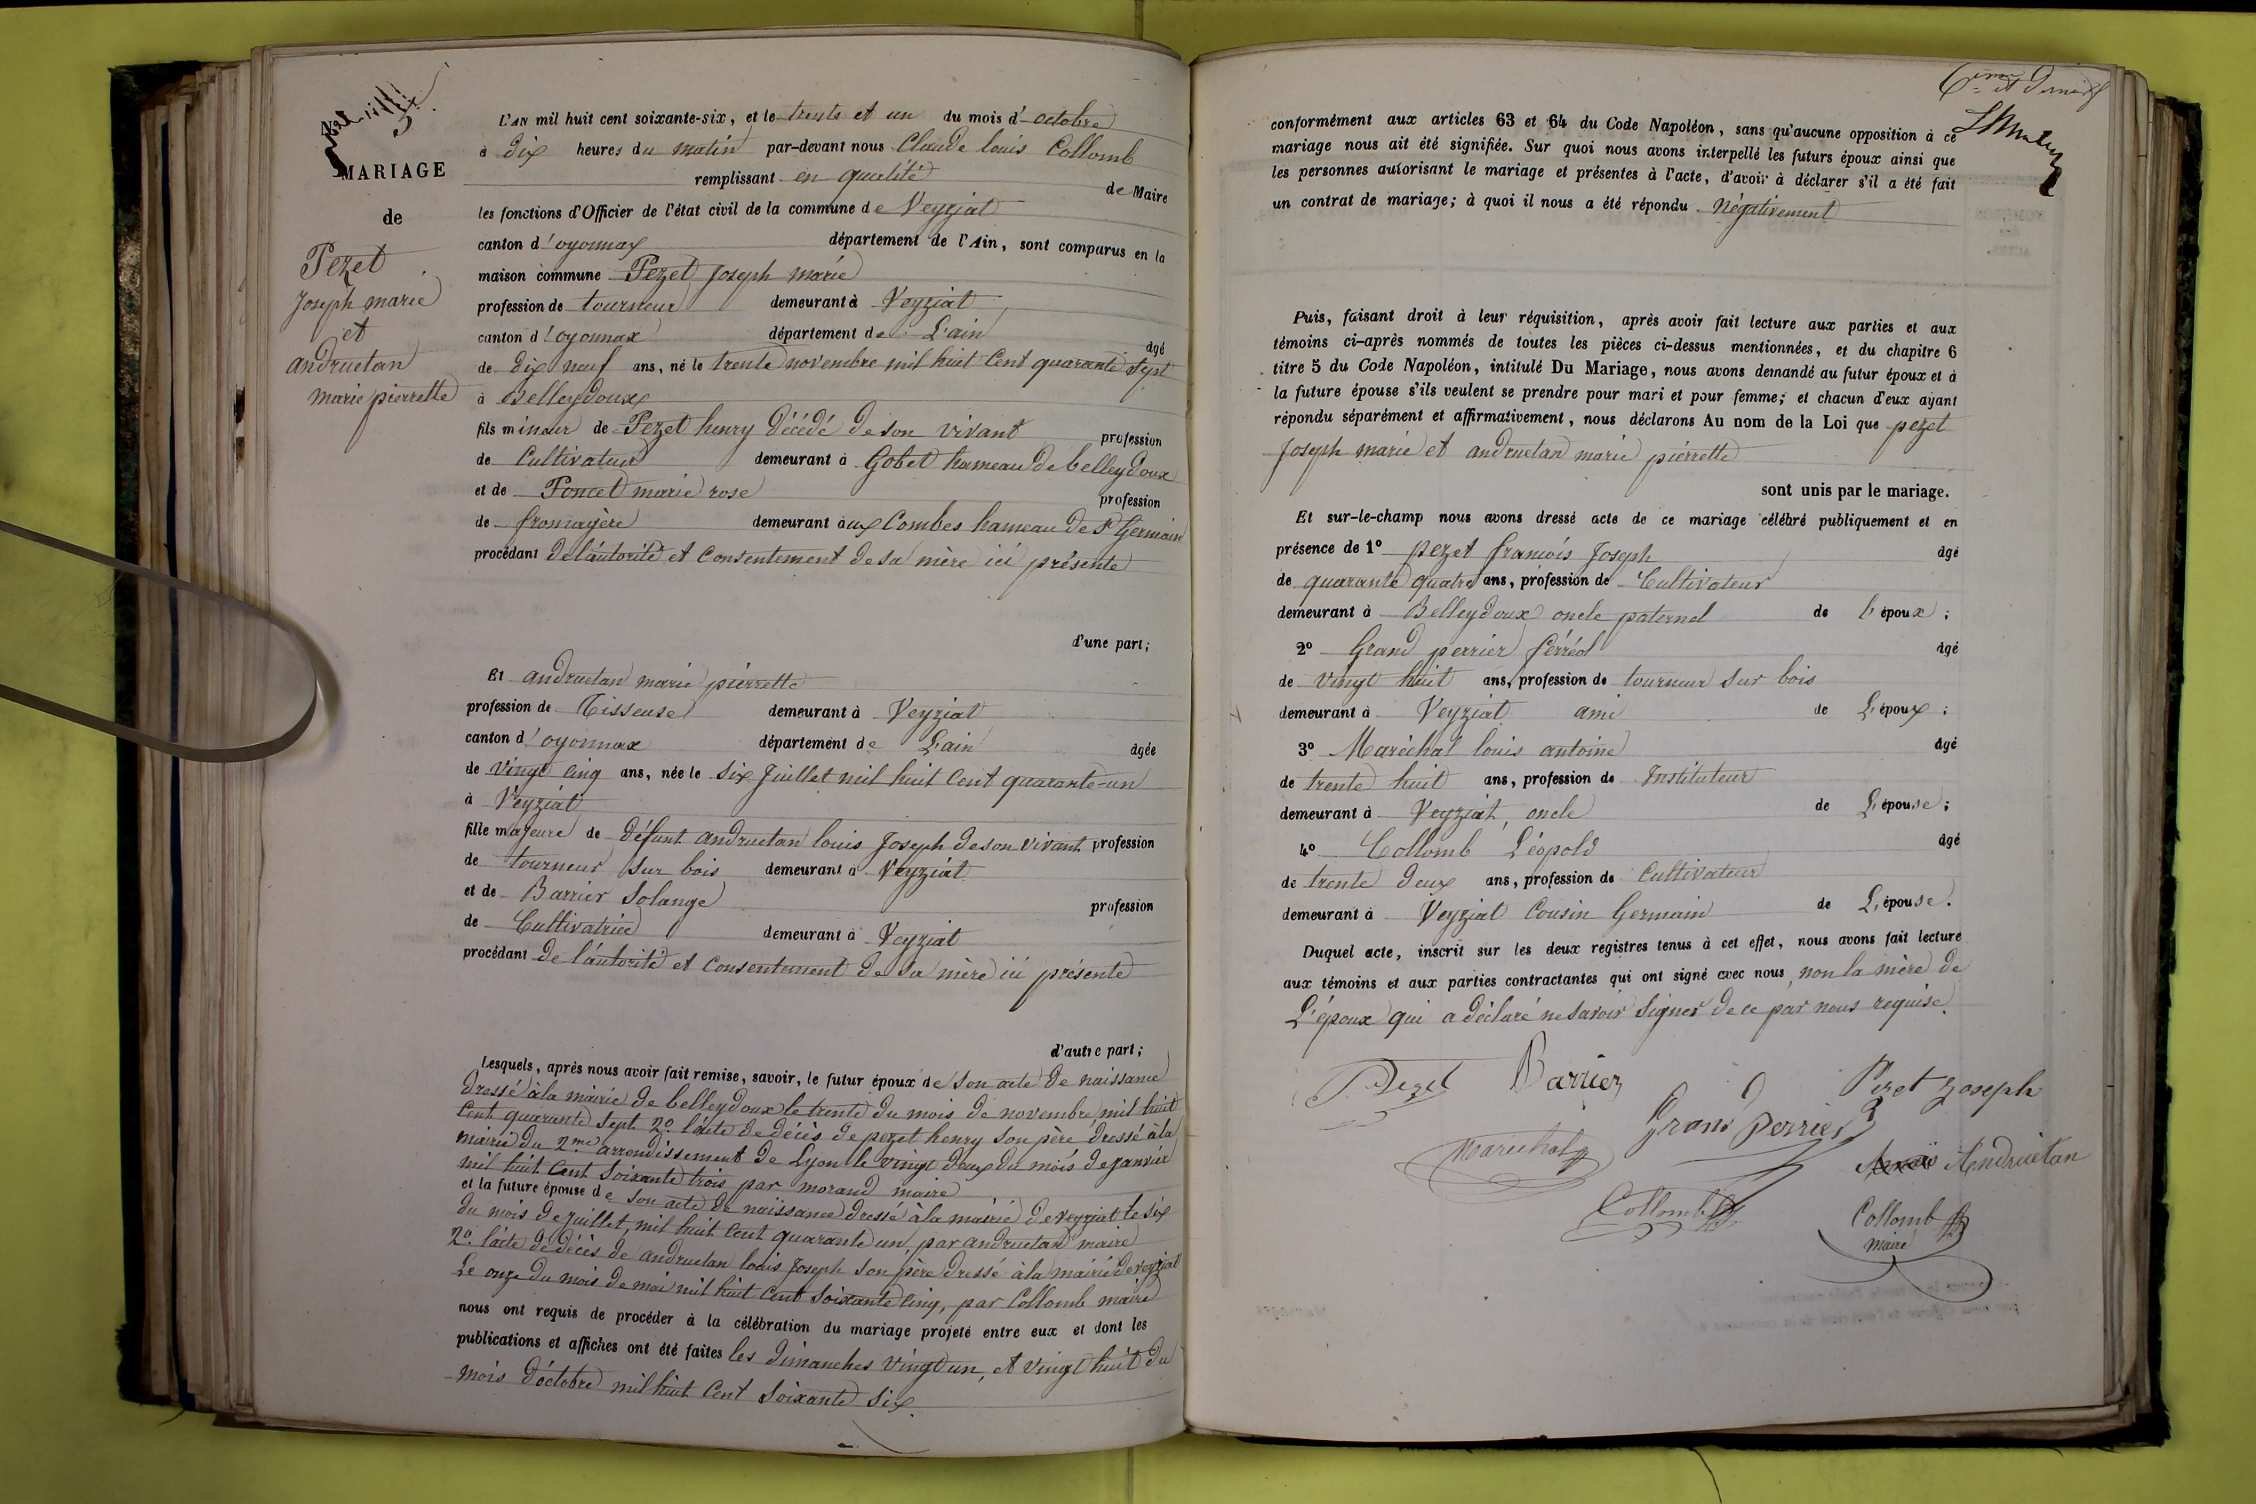 MARIAGE
de
Pezet
Joseph marie
et
andruetan
marie pierrette
L'AN mil huit cent soixante-six, et le trente et un du mois d'octobre
à dix heures du matin par-devant nous Claude louis Collomb
remplissant en qualité de Maire
les fonctions d'Officier de l'état civil de la commune de Veyziat
canton d'oyonnax département de l'Ain, sont comparus en la
maison commune Pezet Joseph marie
profession de tourneur demeurant à Veyziat
canton d'oyonnax département de L'ain âgé
de dix neuf ans, né le trente novembre mil huit Cent quarante Sept
à Belleydoux
fils mineur de Pezet henry Décédé de son vivant profession
de Cultivateur demeurant à Gobet hameau de belleydoux
et de Poncet marie rose profession
de fromagère demeurant aux Combes hameau de St Germain
procédant de l'autorité et Consentement de sa mère ici présente
d'une part;
Et andruetan marie pierrette
profession de Tisseuse demeurant à Veyziat
canton d'oyonnax département de L'ain âgée
de vingt cinq ans, née le six Juillet mil huit Cent quarante-un
à Veyziat
fille majeure de défunt andruetan louis Joseph de son vivant profession
de tourneur sur bois demeurant à Veyziat
et de Barrier Solange profession
de Cultivatrice demeurant à Veyziat
procédant de l'autorité et Consentement de sa mère ici présente
d'autre part;
Lesquels, après nous avoir fait remise, savoir, le futur époux de son acte de naissance
dressé à la mairie de belleydoux le trente du mois de novembre mil huit
Cent quarante sept 2º l'acte de décès de pezet henry son père dressé à la
mairie du 2me arrondissement de Lyon le vingt deux du mois de janvier
mil huit Cent Soixante trois par morand maire
et la future épouse de son acte de naissance dressé à la mairie de veyziat le six
du mois de juillet, mil huit Cent quarante un, par andruetan maire
2º l'acte de décès de andruetan louis Joseph son père dressé à la mairie de veyziat
Le onze du mois de mai mil huit Cent soixante cinq, par Collomb maire
nous ont requis de procéder à la célébration du mariage projeté entre eux et dont les
publications et affiches ont été faites les dimanches vingt un, et vingt huit du
mois d'octobre mil huit Cent Soixante Six.
conformément aux articles 63 et 64 du Code Napoléon, sans qu'aucune opposition à ce
mariage nous ait été signifiée. Sur quoi nous avons interpellé les futurs époux ainsi que
les personnes autorisant le mariage et présentes à l'acte, d'avoir à déclarer s'il a été fait
un contrat de mariage; à quoi il nous a été répondu Négativement
Puis, faisant droit à leur réquisition, après avoir fait lecture aux parties et aux
témoins ci-après nommés de toutes les pièces ci-dessus mentionnées, et du chapitre 6
titre 5 du Code Napoléon, intitulé Du Mariage, nous avons demandé au futur époux et à
la future épouse s'ils veulent se prendre pour mari et pour femme; et chacun d'eux ayant
répondu séparément et affirmativement, nous déclarons Au nom de la Loi que pezet
Joseph marie et andruetan marie pierrette
sont unis par le mariage.
Et sur-le-champ nous avons dressé acte de ce mariage célébré publiquement et en
présence de 1º pezet francois Joseph âgé
de quarante quatre ans, profession de Cultivateur
demeurant à Belleydoux oncle paternel de l'époux;
2º Grand perrier férréol âgé
de vingt huit ans, profession de tourneur sur bois
demeurant à Veyziat ami de L'époux;
3º Maréchal louis antoine âgé
de trente huit ans, profession de Instituteur
demeurant à Veyziat, oncle de L'épouse;
4º Collomb Léopold âgé
de trente deux ans, profession de Cultivateur
demeurant à Veyziat Cousin Germain de L'épouse.
Duquel acte, inscrit sur les deux registres tenus à cet effet, nous avons fait lecture
aux témoins et aux parties contractantes qui ont signé avec nous, non la mère de
L'époux qui a déclaré ne savoir signer de ce par nous requise.
Pezet Barrier Pezet Joseph
Grand Perrier
Marechal Andruétan
Collomb Collomb
maire